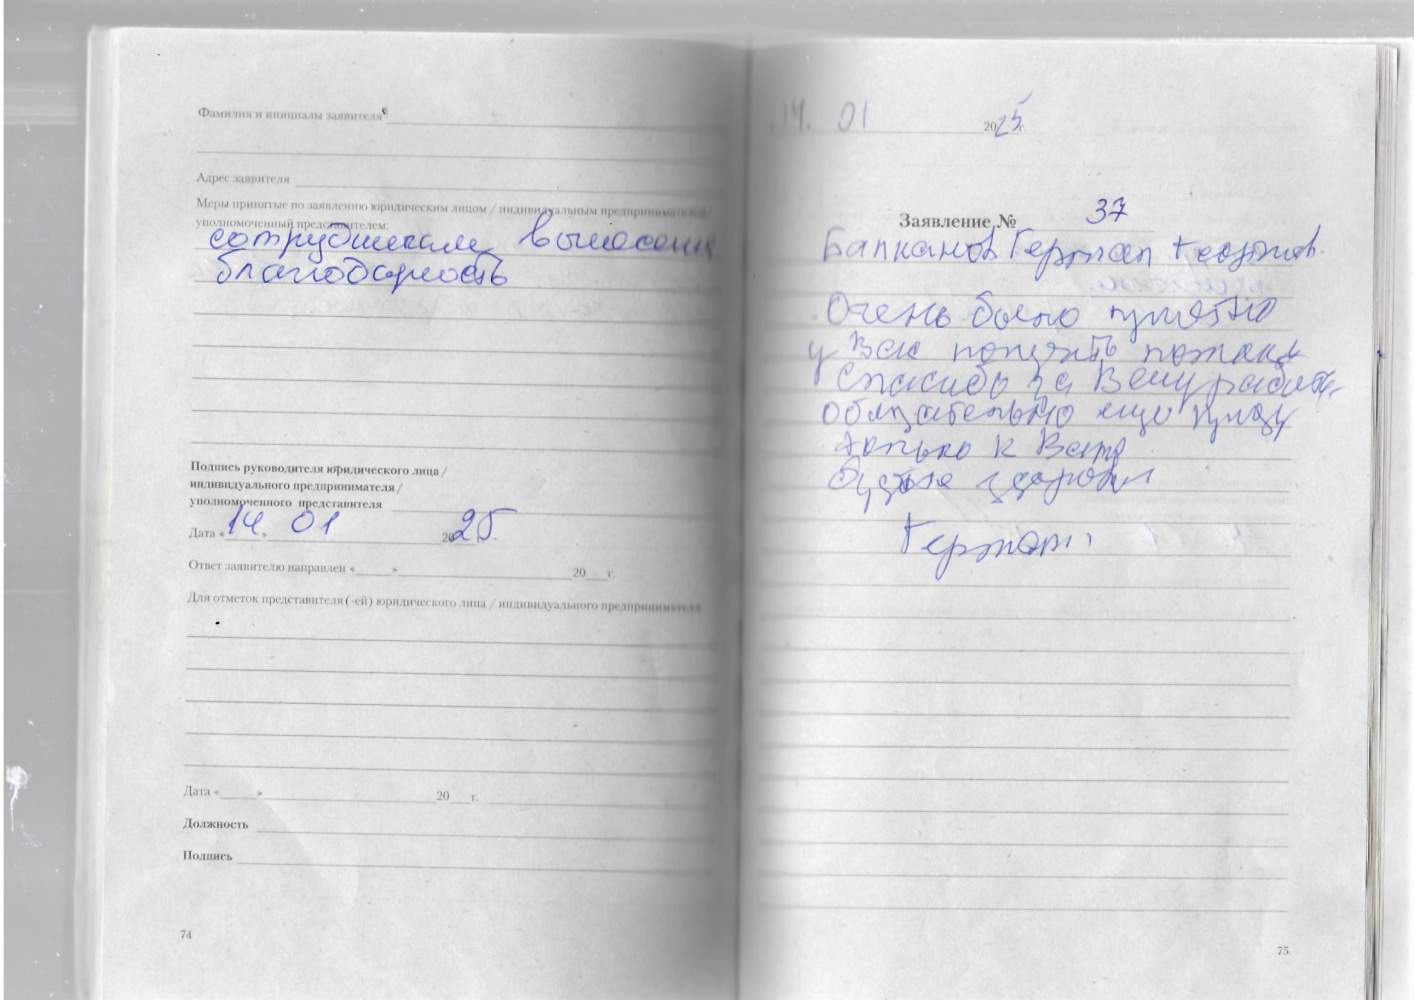 Фамилия и инициалы заявителя
Адрес заявителя
Меры принятые по заявлению юридическим лицом / индивидуальным предпринимателем
уполномоченный представителем:
сотрудникам вынесена
благодарность
Подпись руководителя юридического лица /
индивидуального предпринимателя /
уполномоченного представителя
Дата «14» 01 2025
Ответ заявителю направлен «____»____ 20___г.
Для отметок представителя (-ей) юридического лица / индивидуального предпринимателя
Дата «____»____ 20___г.
Должность
Подпись
74
14. 01 2025г.
Заявление № 37
Герман
Очень было приятно
у Вас
Спасибо за Вашу работу
обязательно еще приду
только к Вам
Будьте здоровы
Герман
75